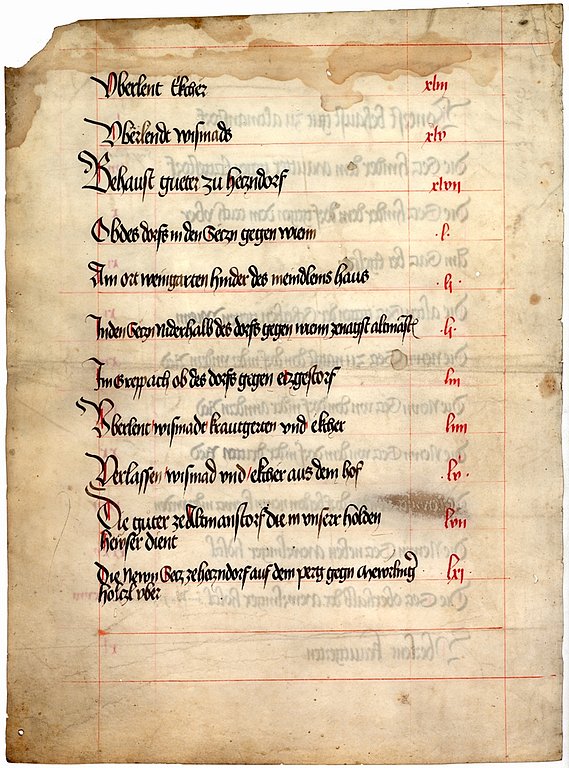 Vberlent Ekcher xliii
Vberlendt wismads xlv
Behaust gueter zu herzndorf xlvii
Ob des dorfs in den Seczn gegen wienn .l.
Am ort weingarten hinder des meindleins haus .li.
In den Seczn niderhalb des dorfs gegen wienn zenagst .li.
Im Greppach ob des dorfs gegen erzgestorf liii
Vberlent wismadt krautgerten vnd ekcher liiii
Verlassen wismad vnd ekcher aus dem hof .lv.
Die guter ze Altmanstorf die in vnserr holden lviii
hewser dient
Die Newn Secz ze herzndorf auf dem perg gegn lxi
holczl vber